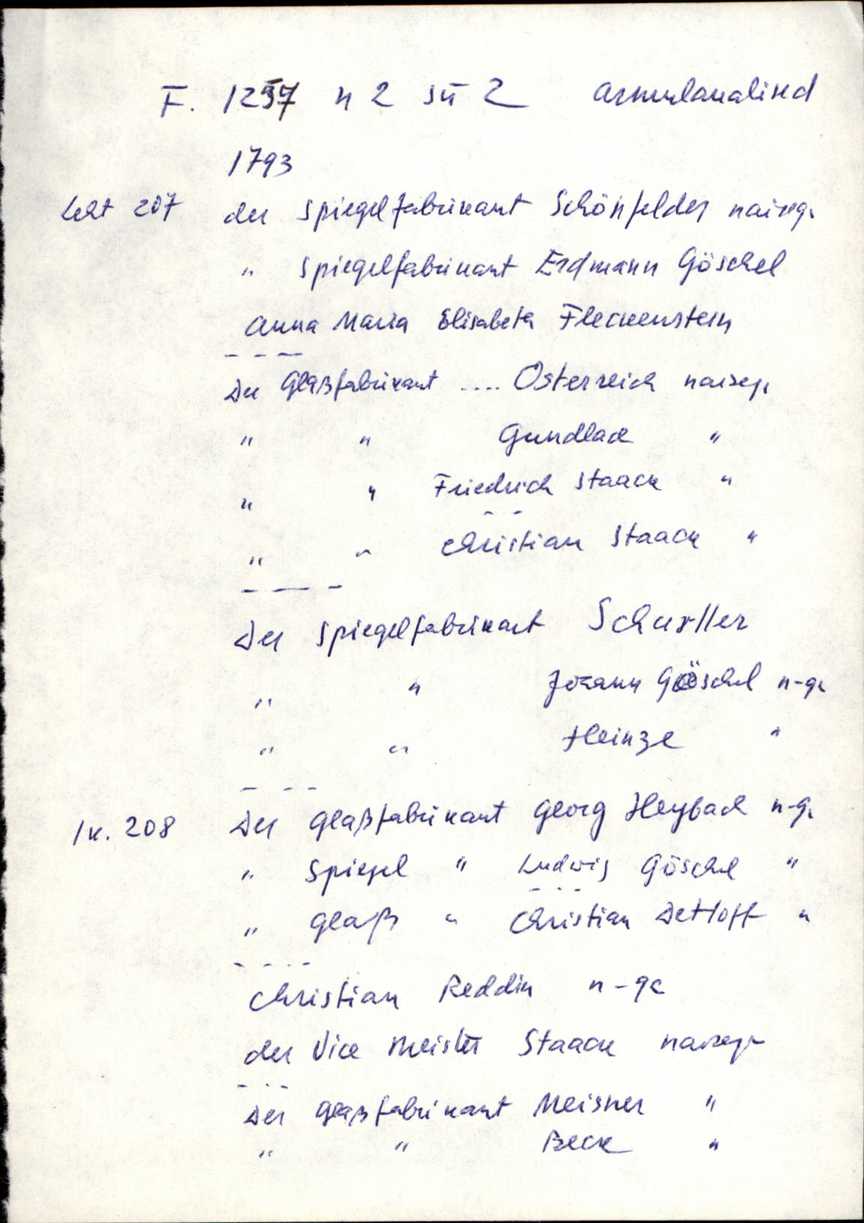 F. 1257 n 2 sü 2 armulaualised
1793
leht 207 der Spiegelfabrikant Schönfelder naisega
" Spiegelfabrikant Erdmann Göschel
Anna Maria Elisabeth Fleckenstein
----
Der Glaßfabrikant .... Österreich naisega
" " Gundlach "
" " Friedrich Staack "
" " Christian Staack "
----
Der Spiegelfabrikant
" " Johann Göschel n-ga
" " Heinze "
----
lk. 208 Der Glaßfabrikant Georg Heybach n-ga
" Spiegel " Ludwig Göschel "
" Glaß " Christian Dettloff "
----
Christian Reddin n-ga
der Vice Meister Staack naisega
---
Der Glaßfabrikant Meisner "
" " Beck "